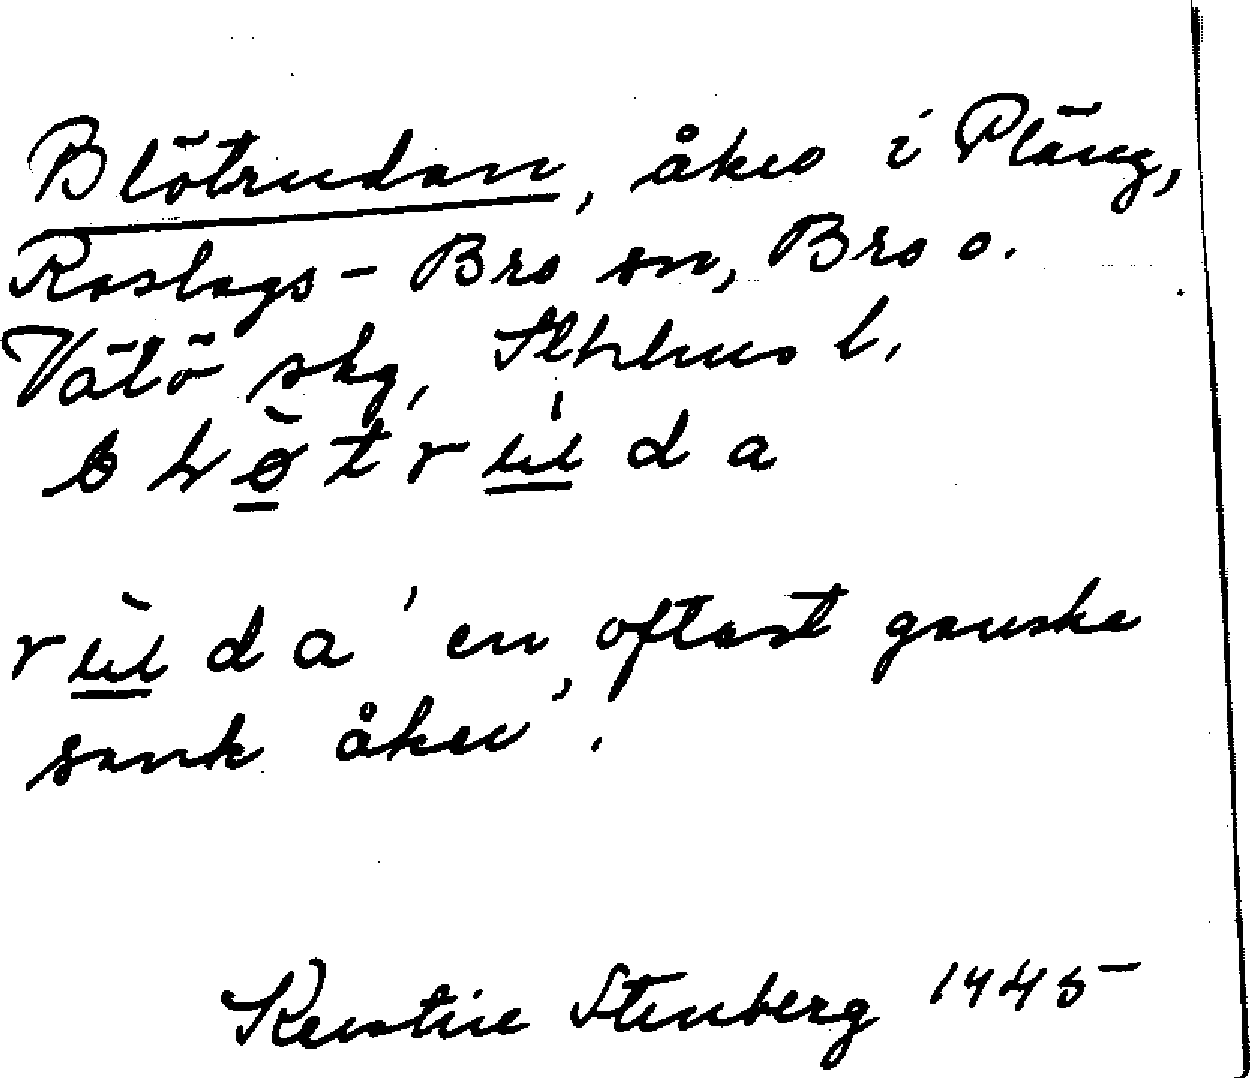 Blötrudan, åker i Pläng,
Roslags-Bro sn, Bro o.
Vätö skg, Sthlms l.
rud̲a 'en, oftast ganska
sank åker'.
Kerstin Stenberg 1945